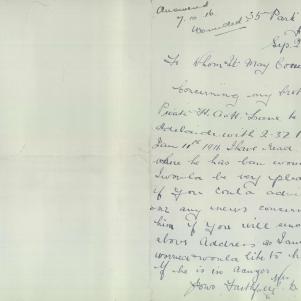 Answered
7.10.16
wounded
35 Park
Sep. 2
To Whom It May Conc
Concerning my brot
Private H. Croft
Adelaide with 2-32
Jan 11th 1916 I have read
where he has been woun
I would be very plea
if you could advi
me any news concern
him if you will
above Address as I am
worried & would like to h
if he is in danger
Yours Faithfully